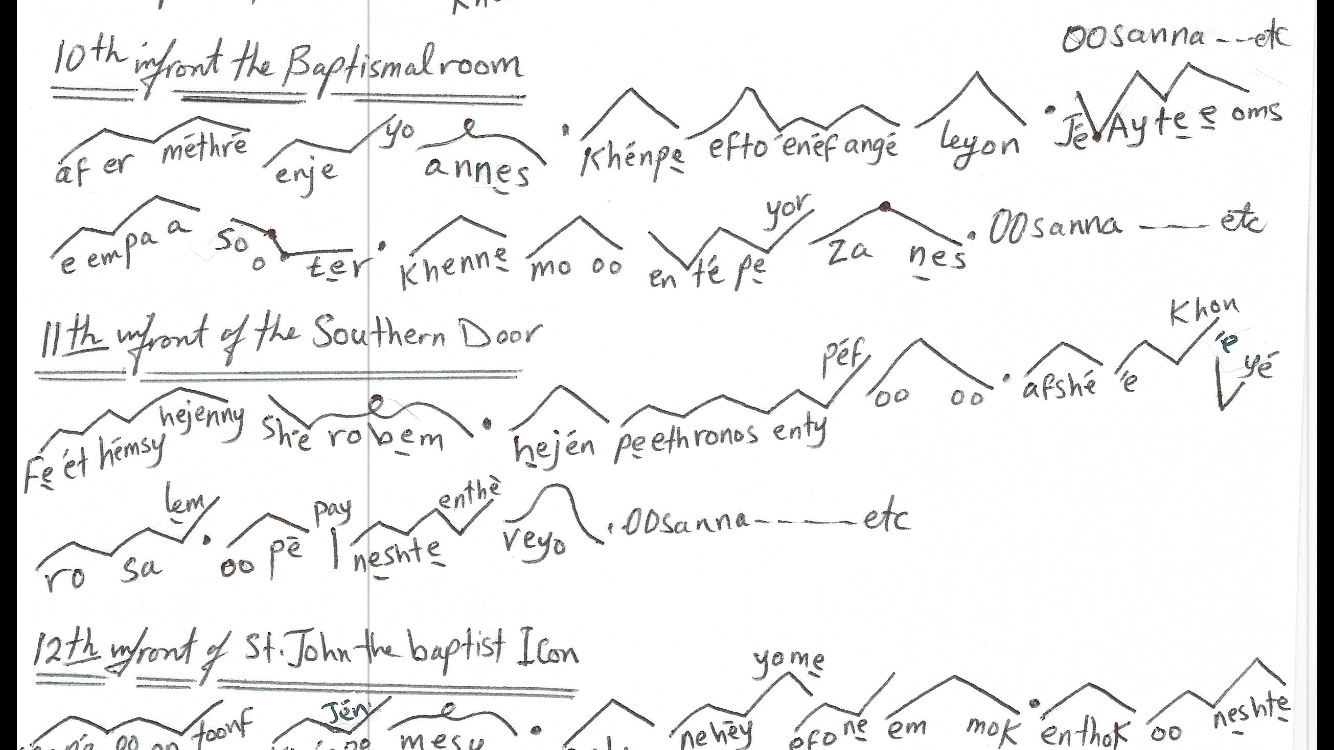 OOsanna ---etc
10th infront the Baptismal room
áf er méthré enje yo annes . Khénpe efto énéf angé leyon . Jé Ayte e oms
e empa a so o ter . Khenne mo oo en té pe yor za nes . OOsanna —— etc
11th infront of the Southern Door
Fe ét hémsy hejenny She ro bem . hején peethronos enty péf oo oo . áfshé é Khon é yé
ro sa lem . oo pē pay neshte enthē veyo . OOsanna------etc
12th infront of St. John the baptist Icon
toonf Jén mesy . nehēy yome éfo ne em mok . enthok oo neshte